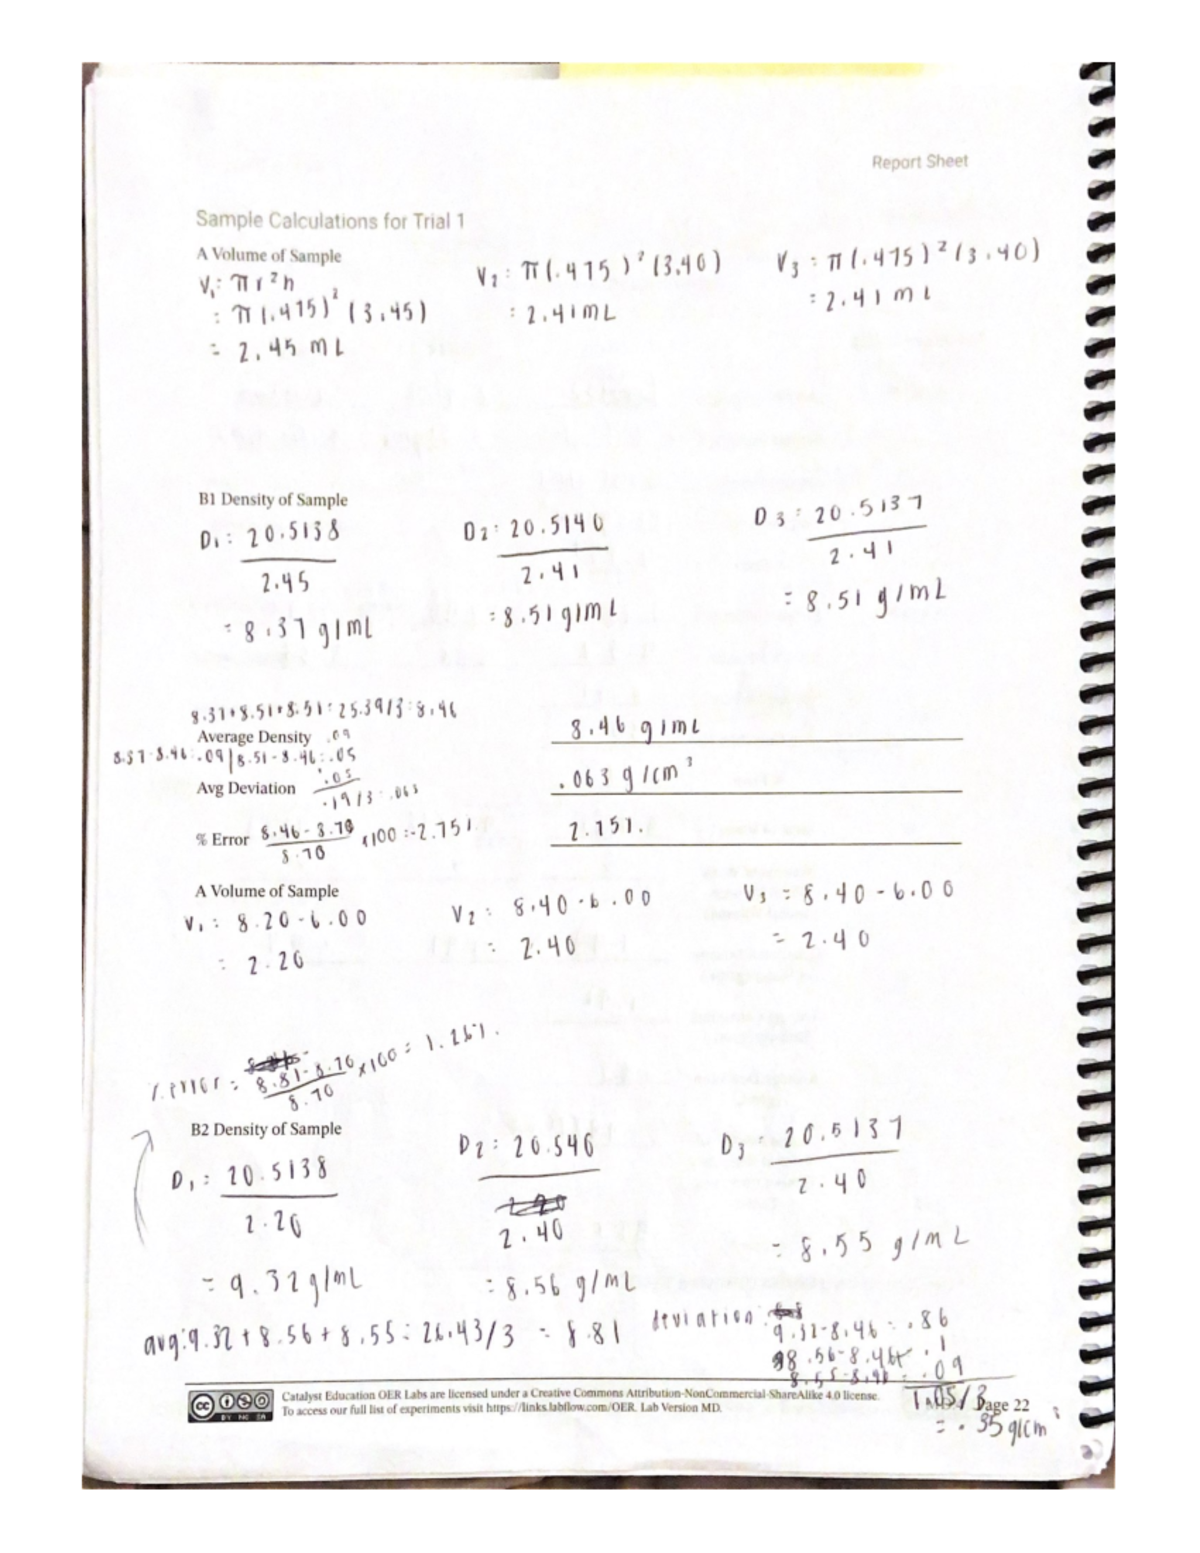 Report Sheet
Sample Calculations for Trial 1
A Volume of Sample
V₁: πr²h
: π(.475)² (3.45)
= 2.45 mL
V₂: π(.475)² (3.40)
: 2.41mL
V₃ : π(.475)² (3.40)
: 2.41 mL
B1 Density of Sample
D₁: 20.5138
2.45
= 8.37 g/mL
D₂: 20.5140
2.41
= 8.51 g/mL
D₃: 20.5137
2.41
= 8.51 g/mL
8.37+8.51+8.51=25.39/3=8.46
Average Density .09
8.46 g/mL
8.37-8.46=.09 | 8.51-8.46=.05
Avg Deviation .05
.19/3=.063
.063 g/cm³
% Error 8.46-8.70 x100=-2.75%
8.70
2.75%
A Volume of Sample
V₁: 8.20-6.00
= 2.20
V₂: 8.40-6.00
= 2.40
V₃ = 8.40-6.00
= 2.40
% error = 8.81-8.70 x100 = 1.26%
8.70
B2 Density of Sample
D₁: 20.5138
2.20
= 9.32 g/mL
D₂: 20.540
2.40
= 8.56 g/mL
D₃ 20.5137
2.40
= 8.55 g/mL
avg: 9.32 + 8.56 + 8.55 = 26.43/3 = 8.81
deviation:
9.32-8.46=.86
8.56-8.46= .1
8.55-8.46= .09
1.05/3
= .35 g/cm³
Catalyst Education OER Labs are licensed under a Creative Commons Attribution-NonCommercial-ShareAlike 4.0 license.
To access our full list of experiments visit https://links.labflow.com/OER. Lab Version MD.
Page 22
cc
BY NC SA